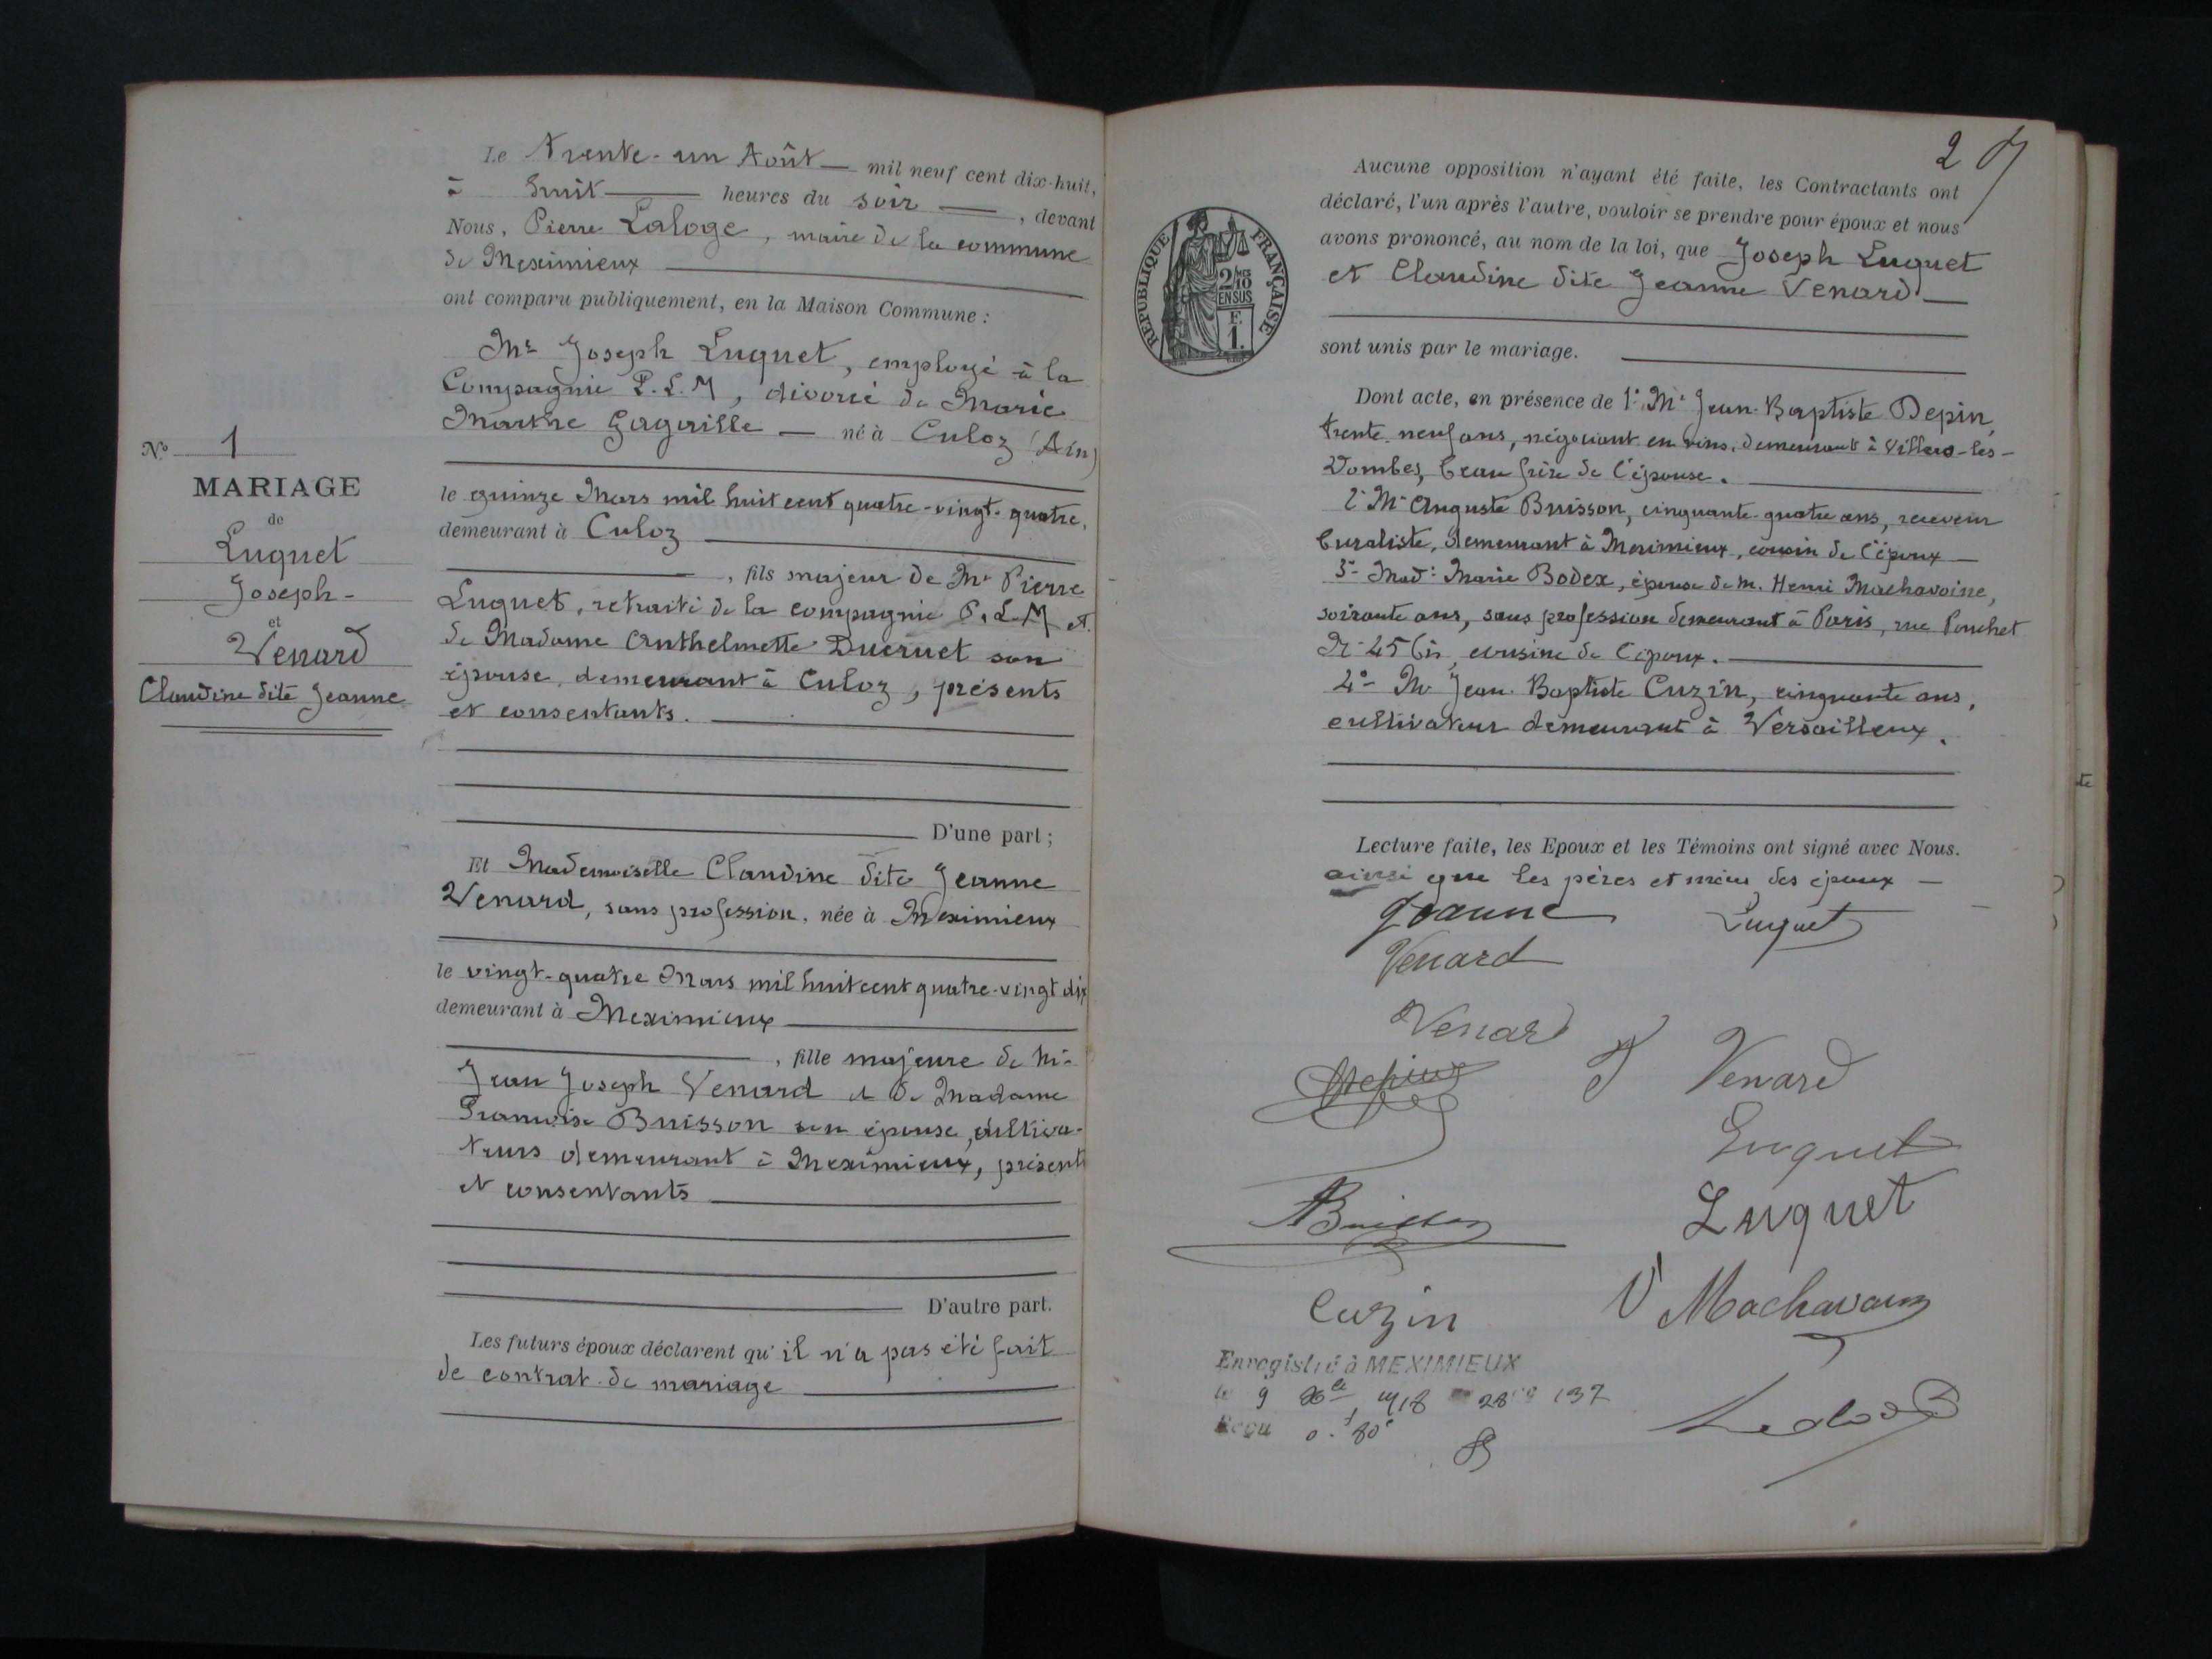 Le Trente-un Août — mil neuf cent dix-huit,
à huit — heures du soir —, devant
Nous, Pierre Laloge, maire de la commune
de Meximieux
ont comparu publiquement, en la Maison Commune :
Mr Joseph Luquet, employé à la
Compagnie P.L.M, divorcé de Marie
Marthe — né à Culoz (Ain)
le quinze Mars mil huit cent quatre-vingt-quatre,
demeurant à Culoz
, fils majeur de Mr Pierre
Luquet, retraité de la compagnie P.L.M et
de Madame Anthelmette Ducruet son
épouse, demeurant à Culoz, présents
et consentants.
D'une part ;
Et Mademoiselle Claudine dite Jeanne
Venard, sans profession, née à Meximieux
le vingt-quatre Mars mil huit cent quatre-vingt dix
demeurant à Meximieux
, fille majeure de Mr
Jean Joseph Venard et de Madame
Francoise Buisson son épouse, cultiva-
teurs demeurant à Meximieux, présents
et consentants
D'autre part.
Les futurs époux déclarent qu'il n'a pas été fait
de contrat de mariage
No 1
MARIAGE
de
Luquet
Joseph -
et
Venard
Claudine dite Jeanne
2
REPUBLIQUE FRANÇAISE
2/10
EN SUS
F.
1.
Aucune opposition n'ayant été faite, les Contractants ont
déclaré, l'un après l'autre, vouloir se prendre pour époux et nous
avons prononcé, au nom de la loi, que Joseph Luquet
et Claudine dite Jeanne Venard —
sont unis par le mariage.
Dont acte, en présence de 1° Mr Jean-Baptiste Depin,
trente neuf ans, négociant en vins, demeurant à Villars-les-
Dombes, beau frère de l'épouse.
2° Mr Auguste Buisson, cinquante-quatre ans, receveur
buraliste, demeurant à Meximieux, cousin de l'époux —
3° Made Marie Bodex, épouse de m. Henri Machavoine,
soixante ans, sans profession demeurant à Paris, rue Pouchet
No 45 bis, cousine de l'époux.
4° Mr Jean-Baptiste Cuzin, cinquante ans,
cultivateur demeurant à Versailleux.
Lecture faite, les Epoux et les Témoins ont signé avec Nous.
ainsi que les pères et mères des époux —
Jeanne Luquet
Venard
Venard
Venard
Depin
Luquet
Luquet
ABuisson
Cuzin
Machavoine
Enregistré à MEXIMIEUX
le 9 8bre 1918 28 137
Reçu 0.f 80c